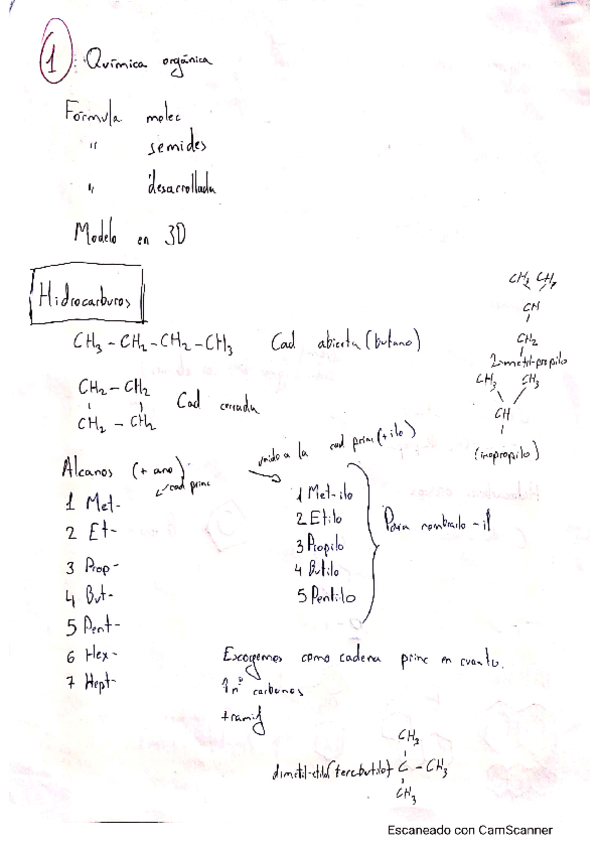 1 Química orgánica
Fórmula molec
" semides
" desarrollada
Modelo en 3D
Hidrocarburos
CH3 - CH2 - CH2 - CH3 Cad abierta (butano)
CH2 - CH2
CH2 - CH2
Cad cerrada
CH3 CH3
CH
CH2
2-metil-propilo
CH3 CH3
CH
(isopropilo)
Alcanos (+ ano)
cad princ
unido a la cad princ (+ ilo)
1 Met-
2 Et-
3 Prop-
4 But-
5 Pent-
6 Hex-
7 Hept-
1 Met-ilo
2 Etilo
3 Propilo
4 Butilo
5 Pentilo
Para nombrarlo -il
Escogemos como cadena princ en cuanto.
↑nº carbonos
+ ramif
CH3
dimetil-etilo (tercbutilo) C - CH3
CH3
Escaneado con CamScanner